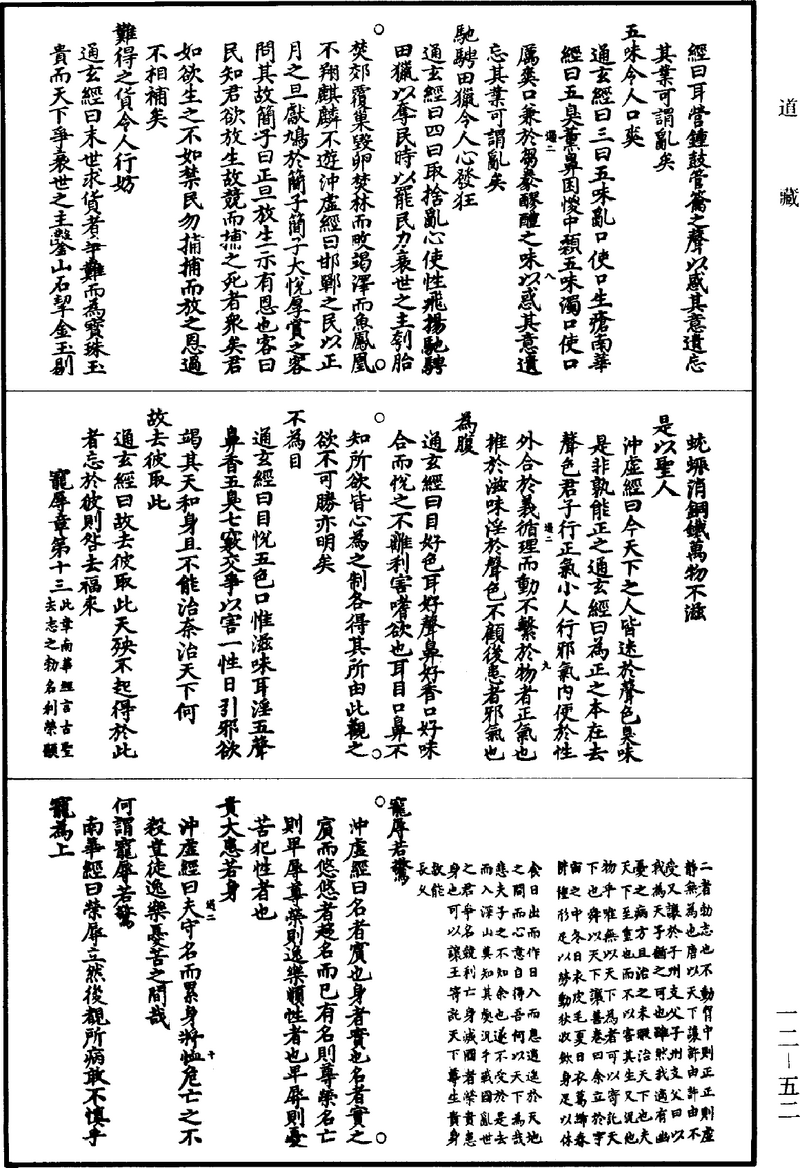 道藏
經曰耳營鍾鼓管籥之聲以惑其意遺忘
其業可謂亂矣
五味令人口爽
通玄經曰三曰五味亂口使口生瘡南華
經曰五臭薰鼻困惾中顙五味濁口使口
厲爽口兼於芻豢醪醴之味以惑其意遺
忘其業可謂亂矣
馳騁田獵令人心發狂
通玄經曰四曰取捨亂心使性飛揚馳騁
田獵以奪民時以罷民力衰世之主刳胎
焚郊覆巢毀卵焚林而畋竭澤而魚鳳凰
不翔麒麟不遊沖虛經曰邯鄲之民以正
月之旦獻鳩於簡子簡子大悅厚賞之客
問其故簡子曰正旦放生示有恩也客曰
民知君欲放生故競而捕之死者衆矣君
如欲生之不如禁民勿捕捕而放之恩過
不相補矣
難得之貨令人行妨
通玄經曰末世求貨者爭難而為寶珠玉
貴而天下爭衰世之主鑿山石挈金玉剔
蚌蜃消銅鐵萬物不滋
是以聖人
沖虛經曰今天下之人皆迷於聲色臭味
是非孰能正之通玄經曰為正之本在去
聲色君子行正氣小人行邪氣內便於性
外合於義循理而動不繫於物者正氣也
推於滋味淫於聲色不顧後患者邪氣也
為腹
通玄經曰目好色耳好聲鼻好香口好味
合而悅之不離利害嗜欲也耳目口鼻不
知所欲皆心為之制各得其所由此觀之
欲不可勝亦明矣
不為目
通玄經曰目悅五色口惟滋味耳淫五聲
鼻香五臭七竅交爭以害一性日引邪欲
竭其天和身且不能治奈治天下何
故去彼取此
通玄經曰故去彼取此天殃不起得於此
者忘於彼則咎去福來
寵辱章第十三 此章南華經言古聖去志之勃名利榮顯
二者勃志也不動胷中則正正則虛
靜無為也唐以天下讓許由許由不
受又讓於子州支父子州支父曰以
我為天子猶之可也雖然我適有幽
憂之病方且治之未暇治天下也夫
天下至重也而不以害其生又況他
物乎唯無以天下為者可以寄託天
下也舜以天下讓善卷曰余立於宇
宙之中冬日衣皮毛夏日衣葛絺春
耕種形足以勞動秋收斂身足以休
食日出而作日入而息逍遙於天地
之間而心意自得吾何以天下為哉
悲夫子之不知余也遂不受於是去
而入深山莫知其處況乎戰國亂世
之君爭名競利亡身滅國者榮貴患
身也可以讓王寄託天下尊生貴身
故能
長久
寵辱若驚
沖虛經曰名者賓也身者實也名者實之
賓而悠悠者趨名而已有名則尊榮名亡
則卑辱尊榮則逸樂順性者也卑辱則憂
苦犯性者也
貴大患若身
沖虛經曰夫守名而累身將恤危亡之不
救豈徒逸樂憂苦之間哉
何謂寵辱若驚
南華經曰榮辱立然後覩所病敢不慎乎
寵為上
一二-五二